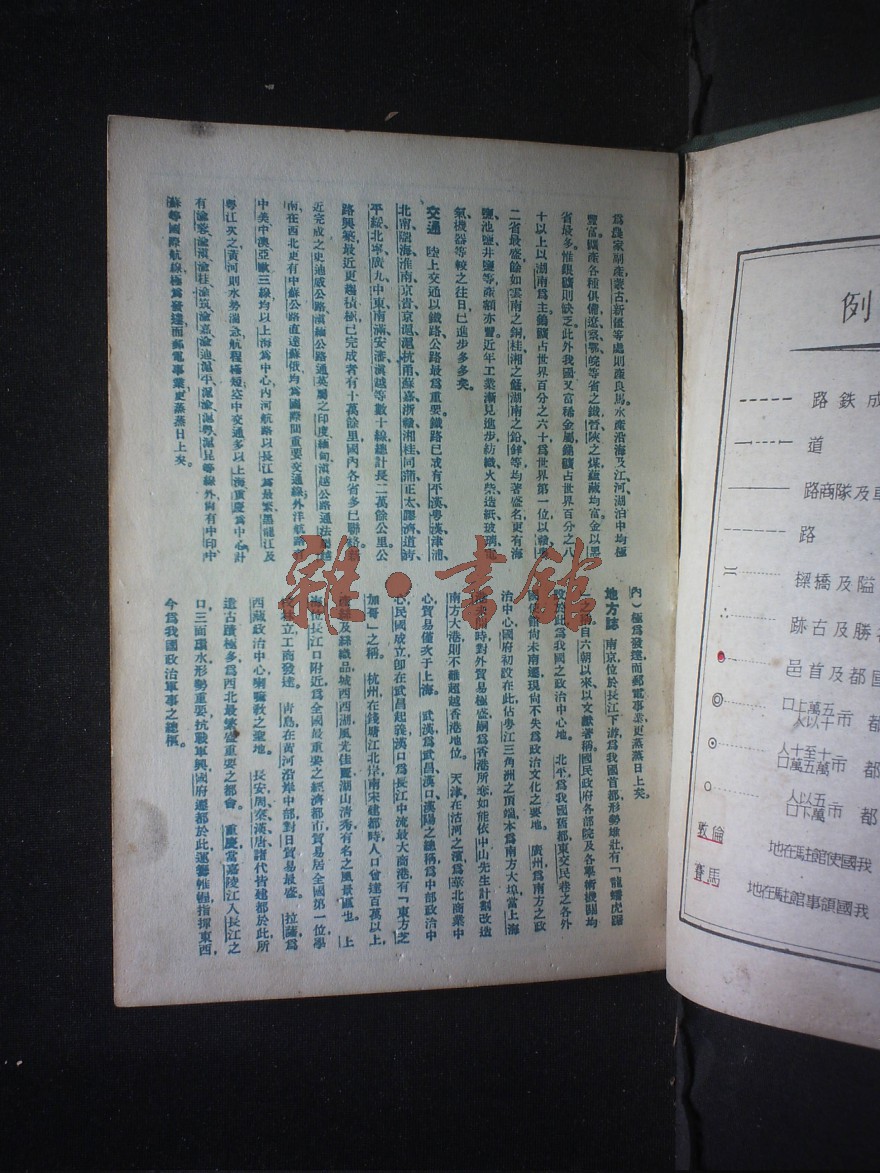 為農家副產蒙古新疆等處則產良馬水產沿海及江河湖泊中均極
豐富礦產各種俱備遼察鄂皖等省之鐵晉陝之煤蘊藏均富金以黑
省最多惟銀礦則缺乏此外我國又富稀金屬銻礦占世界百分之八
十以上以湖南為主鎢礦占世界百分之六十為世界第一位以贛粵
二省最盛餘如雲南之銅桂湘之錳湖南之鉛鋅等均著盛名更有海
鹽池鹽井鹽等產額亦豐近年工業漸見進步紡織火柴造紙玻璃
氣機器等較之往日已進步多多矣。
交通 陸上交通以鐵路公路最為重要。鐵路已成有平漢粵漢津浦、
北甯隴海淮南京贛京滬滬杭甬蘇嘉浙贛湘桂同蒲正太膠濟道清、
平綏北寧廣九中東南滿安瀋滇越等數十線總計長二萬餘公里公
路興築最近更趨積極已完成者有十萬餘里國內各省多已聯絡
近完成之史迪威公路滇緬公路通英屬之印度緬甸滇越公路通法
南在西北更有中蘇公路直達蘇俄均為國際間重要交通線外洋航路
中美中澳亞歐三線均以上海為中心內河航路以長江為最繁黑龍江及
粵江次之黃河則水勢湍急航程極短空中交通多以上海重慶為中心計
有渝蓉渝滇渝桂渝筑渝嘉渝迪滬平滬渝滬粵滬昆等線外尚有中印中
蘇等國際航線極為發達而郵電事業更蒸蒸日上矣。
內）極為發達而郵電事業更蒸蒸日上矣。
地方誌 南京位於長江下游為我國首都形勢雄壯有「龍蟠虎踞
自六朝以來以文獻著稱國民政府各部院及各學術機關均
設於此為我國之政治中心地。 北平為我國舊都東交民巷之各外
尚未南遷現尚不失為政治文化之要地。 廣州為南方之政
治中心國府初設在此佔粵江三角洲之頂端本為南方大埠當上海
時對外貿易極盛嗣為香港所奪如能依中山先生計劃改造
南方大港則不難超越香港地位。 天津在沽河之濱為華北商業中
心貿易僅次于上海。 武漢為武昌漢口漢陽之總稱為中部政治中
心民國成立即在武昌起義漢口為長江中流最大商港有「東方芝
加哥」之稱。 杭州在錢塘江北岸南宋建都時人口曾達百萬以上
及絲織品城西西湖風光佳麗湖山清秀有名之風景區也。 上
海位長江口附近為全國最重要之經濟都市貿易居全國第一位學
校林立工商發達。 青島在黃河沿岸中部對日貿易最盛。 拉薩為
西藏政治中心喇嘛教之聖地。 長安周秦漢唐諸代皆建都於此所
遺古蹟極多為西北最繁盛重要之都會。 重慶當嘉陵江入長江之
口三面環水形勢重要抗戰軍興國府遷都於此運籌帷幄指揮東西
今為我國政治軍事之總樞。
雜·書館
例
路鉄成
道
路商隊及
路
樑橋及隘
跡古及勝
邑首及都國
口上萬五
人以十市 都
人十至十
口萬五萬市 都
人以五
口下萬市 都
敦倫 地在駐館使國我
賽馬 地在駐館事領國我